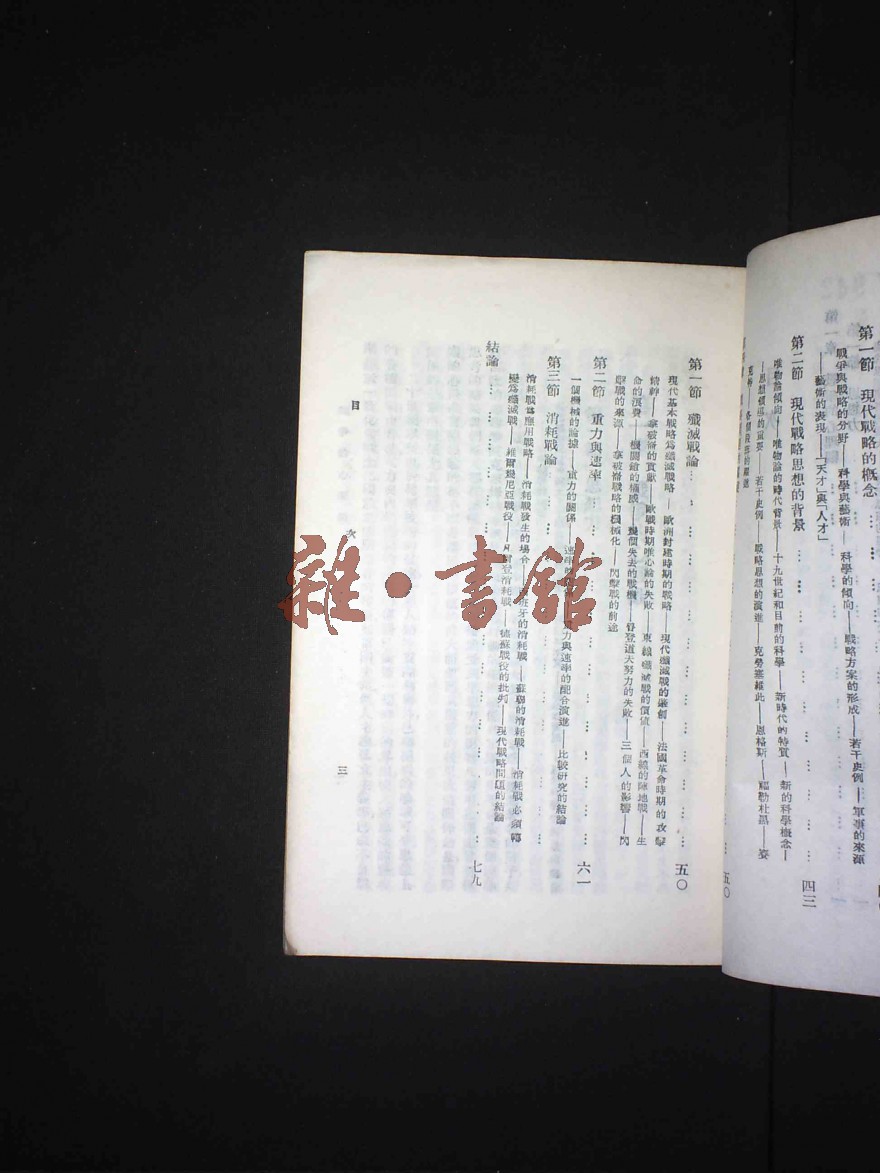 第一節 現代戰略的概念
戰爭與戰略的分野——科學與藝術——科學的傾向——戰略方案的形成——若干史例——軍事的來源
——藝術的表現——「天才」與「人才」
第二節 現代戰略思想的背景 四三
唯物論傾向——唯物論的時代背景——十九世紀和目前的科學——新時代的特質——新的科學概念——
思想領導的重要——若干史例——戰略思想的演進——克勞塞維此——恩格斯——福勒杜黑——姿
五〇
第一節 殲滅戰論 五〇
現代基本戰略為殲滅戰略——歐洲封建時期的戰略——現代殲滅戰的發創——法國革命時期的攻擊
精神——拿破崙的貢獻——歐戰時期唯心論的失敗——東線殲滅戰的價值——西線的陣地戰——生
命的浪費——機關鎗的構成——幾個失去的戰機——魯登道夫努力的失敗——三個人的影響——閃
擊戰的來源——拿破崙戰略的機械化——閃擊戰的前途
第二節 重力與速率 六一
一個機械的論據——重力的關係——速率 重力與速率的配合演進——比較研究的結論
第三節 消耗戰論
消耗戰為應用戰略——消耗戰發生的場合——西班牙的消耗戰——蘇聯的消耗戰——消耗戰必須轉
變為殲滅戰——維爾曼尼亞戰役——凡爾登消耗戰——德蘇戰役的批判——現代戰略問題的結論
結論 七九
目 次
三
雜·書館